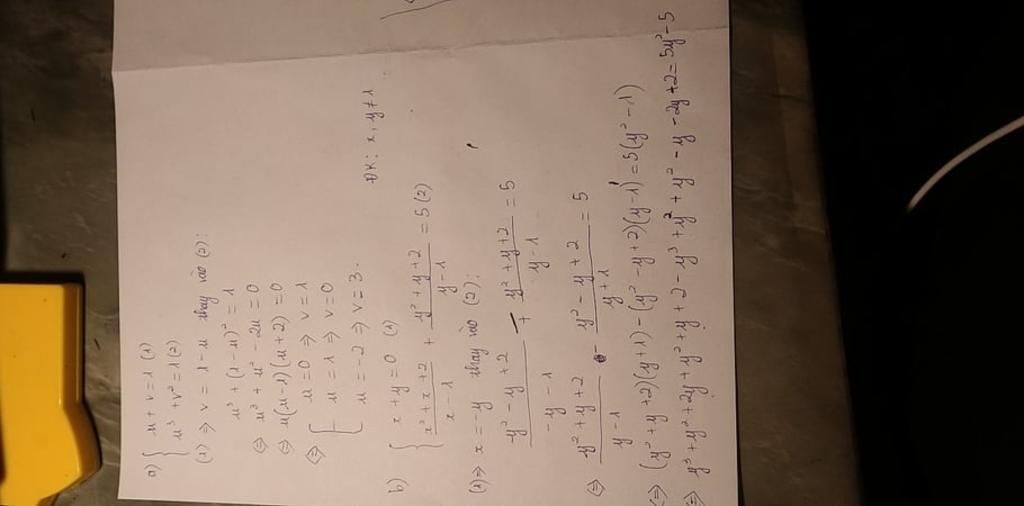 a) { u + v = 1 (1)
u³ + v² = 1 (2)
(1) => v = 1 - u thay vào (2):
u³ + (1 - u)² = 1
<=> u³ + u² - 2u = 0
<=> u(u-1)(u+2) = 0
<=> [ u = 0 => v = 1
u = 1 => v = 0
u = -2 => v = 3.
b) { x + y = 0 (1) ĐK: x, y ≠ 1
(x² + x + 2)/(x - 1) + (y² + y + 2)/(y - 1) = 5 (2)
(1) => x = -y thay vào (2):
(y² - y + 2)/(-y - 1) + (y² + y + 2)/(y - 1) = 5
<=> (y² + y + 2)/(y - 1) - (y² - y + 2)/(y + 1) = 5
<=> (y² + y + 2)(y + 1) - (y² - y + 2)(y - 1) = 5(y² - 1)
<=> y³ + y² + 2y + y² + y + 2 - y³ + y² + y² - y - 2y + 2 = 5y² - 5